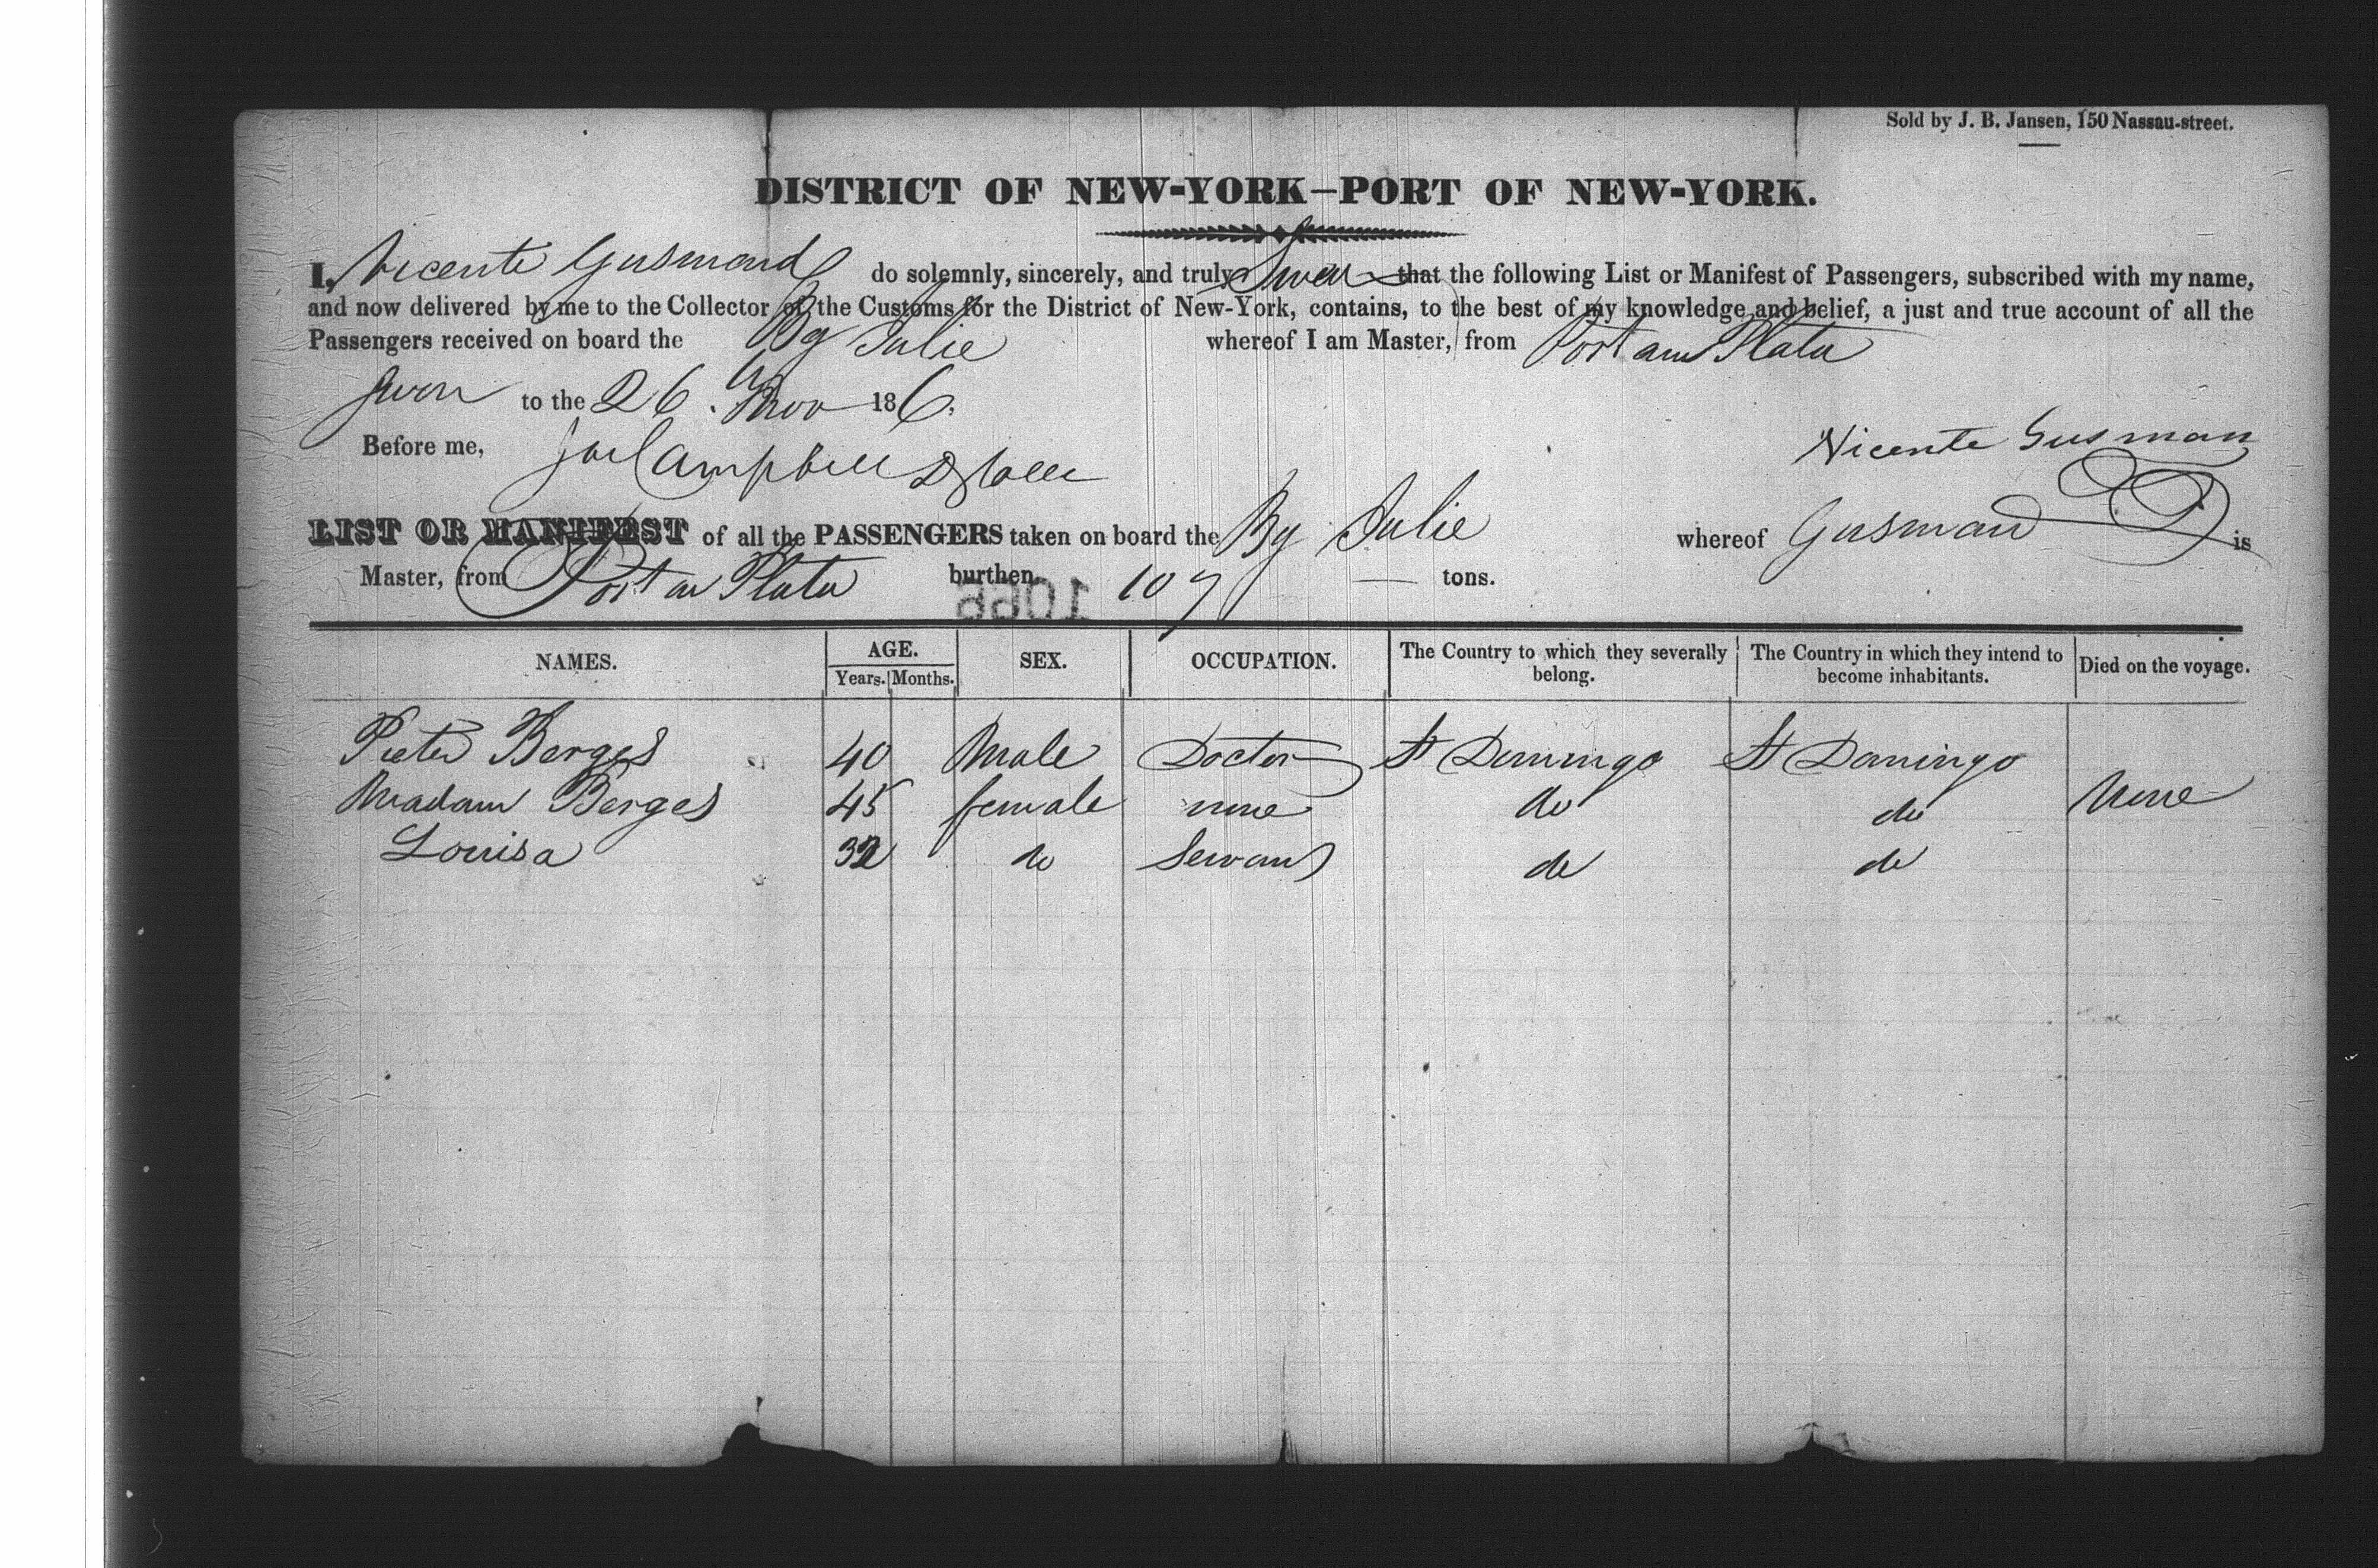 Sold by J. B. Jansen, 150 Nassau-street.
DISTRICT OF NEW-YORK—PORT OF NEW-YORK.
I, Vicente Gusmand do solemnly, sincerely, and truly Swear that the following List or Manifest of Passengers, subscribed with my name,
and now delivered by me to the Collector of the Customs for the District of New-York, contains, to the best of my knowledge and belief, a just and true account of all the
Passengers received on board the Bg Julie whereof I am Master, from Port au Plata
Sworn to the 26 Nov 186
Before me, Campbell Vicente Gusman
LIST OR MANIFEST of all the PASSENGERS taken on board the Bg Julie whereof Gusman is
Master, from Port au Plata burthen 107 tons.
1066
NAMES. AGE. Years. Months. SEX. OCCUPATION. The Country to which they severally belong. The Country in which they intend to become inhabitants. Died on the voyage.
Pieter Berges 40 Male Doctor St Domingo St Domingo
Madam Berges 45 female none do do None
Louisa 32 do Servant do do